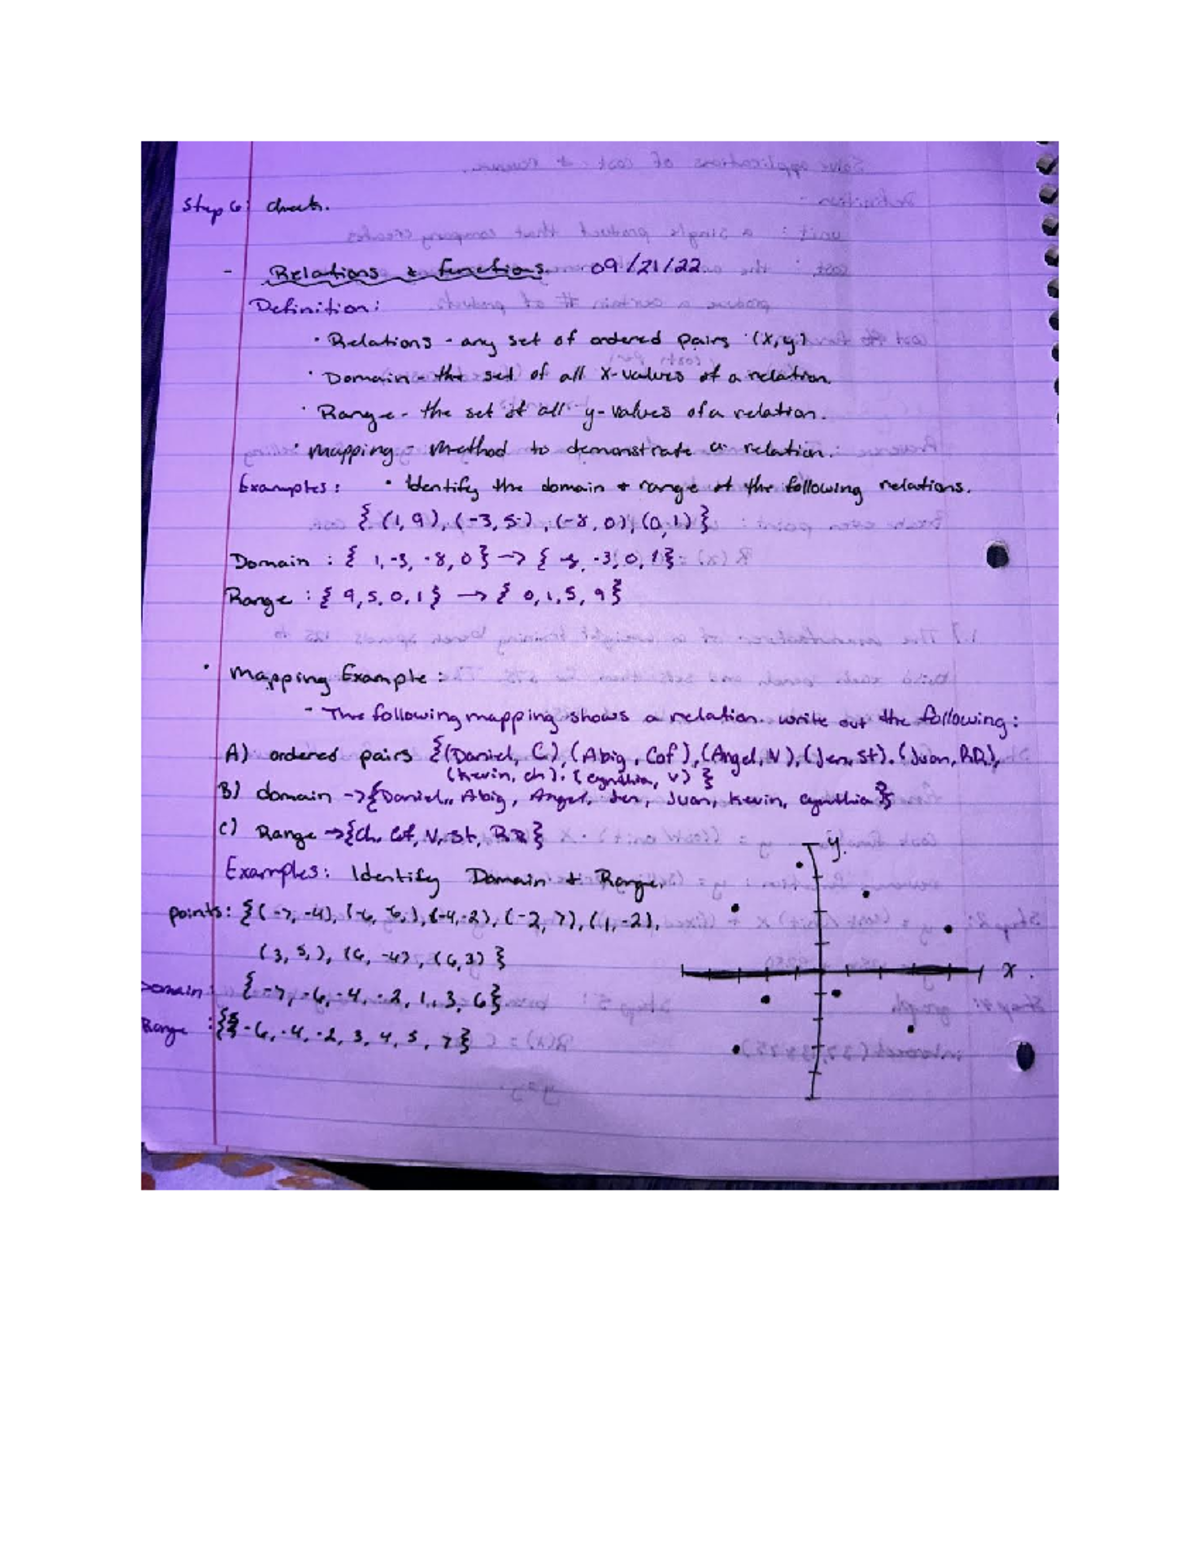 Step 6: check.
- Relations & functions. 09/21/22
Definition:
· Relations - any set of ordered pairs (x,y)
· Domain - the set of all x-values of a relation.
· Range - the set of all y-values of a relation.
· Mapping - Method to demonstrate a relation.
Examples: · Identify the domain + range of the following relations.
{ (1, 9), (-3, 5), (-8, 0), (0, 1) }
Domain : { 1, -3, -8, 0 } → { -8, -3, 0, 1 }
Range : { 9, 5, 0, 1 } → { 0, 1, 5, 9 }
· Mapping Example :
- The following mapping shows a relation. write out the following :
A) ordered pairs {(Daniel, C), (Abig, Cof), (Angel, N), (Jen, St). (Juan, RR),
(Kevin, ch), (cynthia, v) }
B) domain → {Daniel, Abig, Angel, Jen, Juan, Kevin, cynthia }
C) Range → {Ch, Cof, N, St, RR }
y.
Examples: Identify Domain + Range.
points: { (-7, -4), (-6, ), (-4, -2), (-2, 7), (1, -2),
(3, 5,), (6, -4), (6, 3) }
x.
Domain : { -7, -6, -4, -2, 1, 3, 6 }
Range : { -6, -4, -2, 3, 4, 5, 7 }